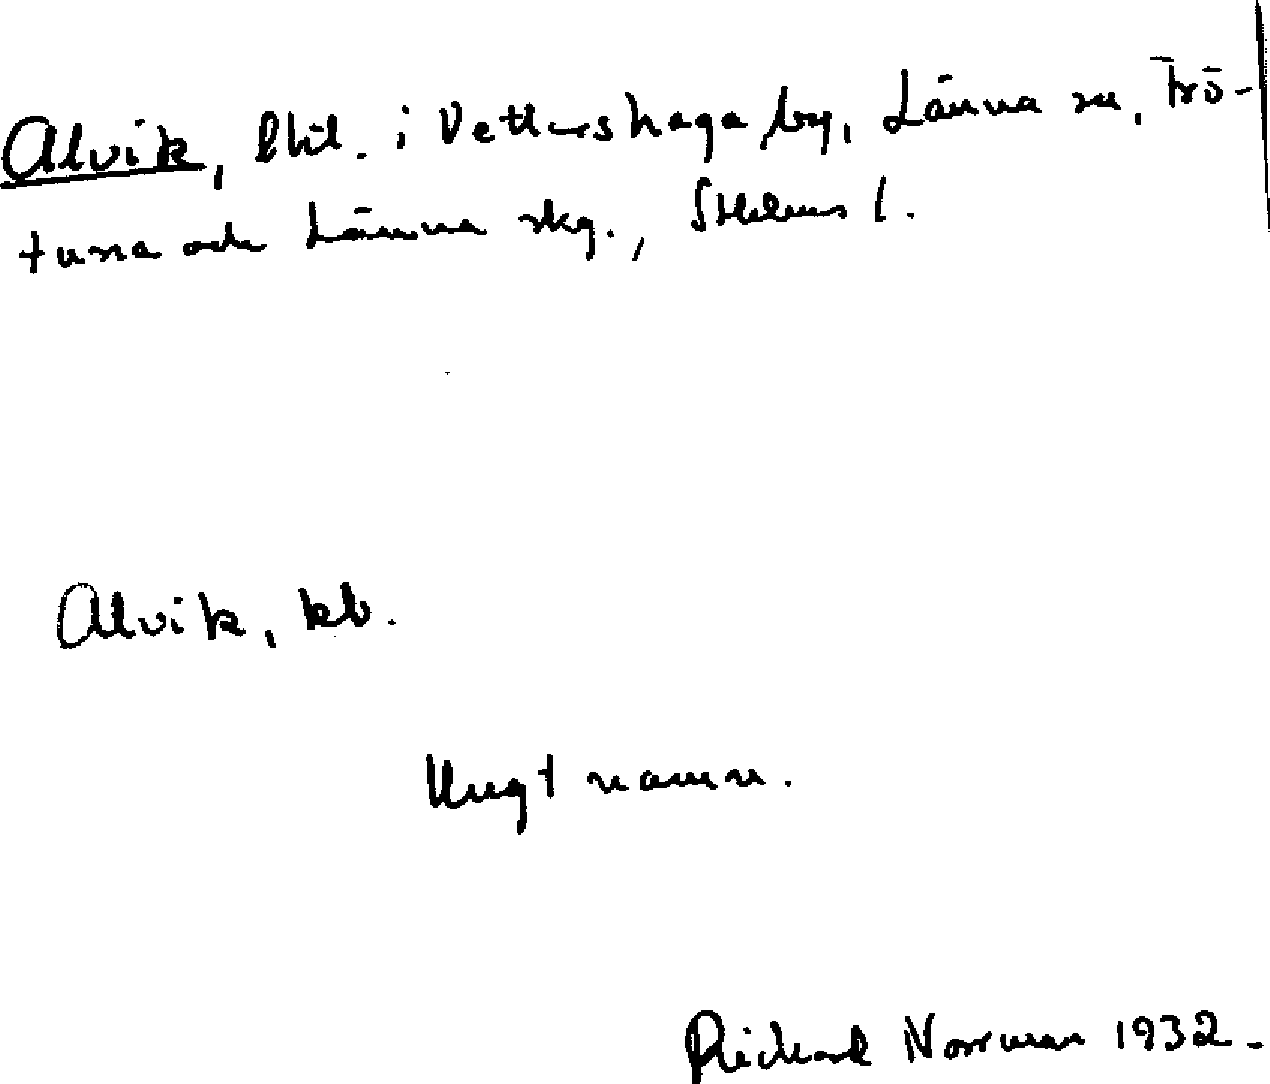 Alvik, lht. i Vettershaga by, Länna sn, Frö-
tuna och Länna skg., Sthlms l.
Alvik, kb.
Ungt namn.
Rickard Norrman 1932.